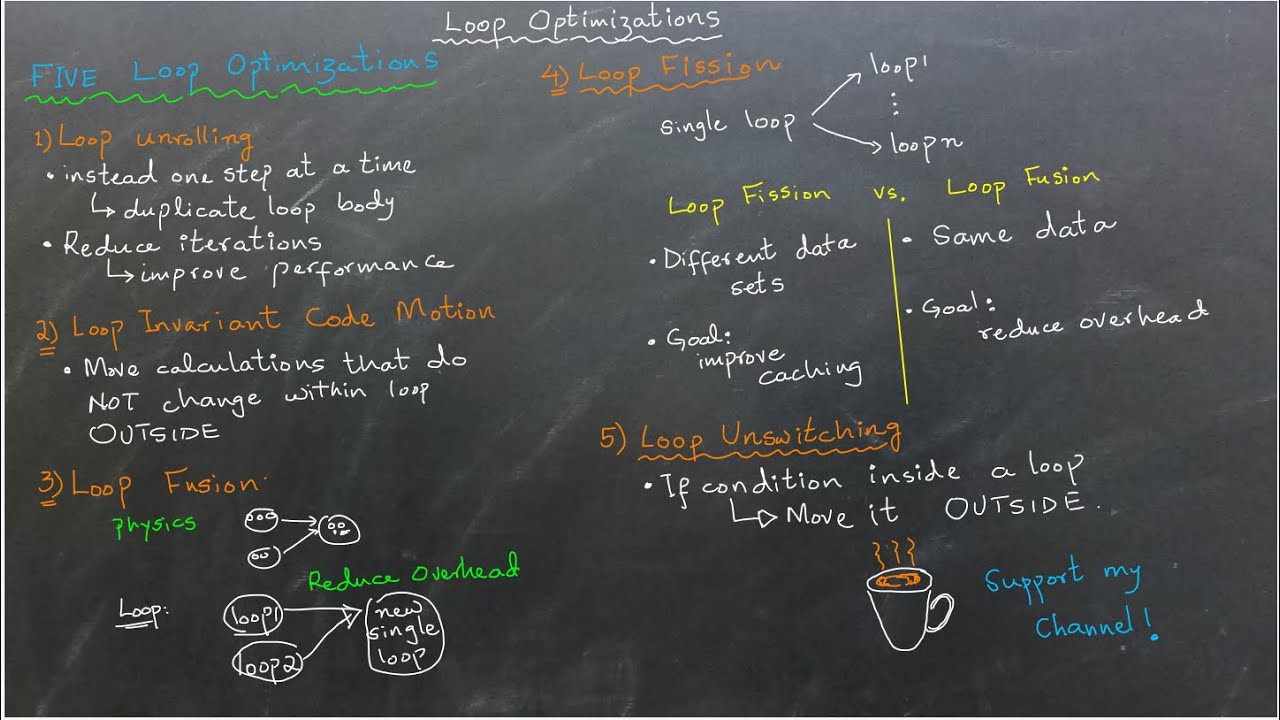 Loop Optimizations
FIVE Loop Optimizations
1) Loop unrolling
• instead one step at a time
↳ duplicate loop body
• Reduce iterations
↳ improve performance
2) Loop Invariant Code Motion
• Move calculations that do
NOT change within loop
OUTSIDE
3) Loop Fusion.
Physics
Reduce Overhead
Loop:
loop1
loop2
new
single
loop
4) Loop Fission
single loop
loop1
⋮
loop n
Loop Fission vs. Loop Fusion
• Different data
sets
• Goal:
improve
caching
• Same data
• Goal:
reduce overhead
5) Loop Unswitching
• If condition inside a loop
↳ Move it OUTSIDE.
Support my
Channel!